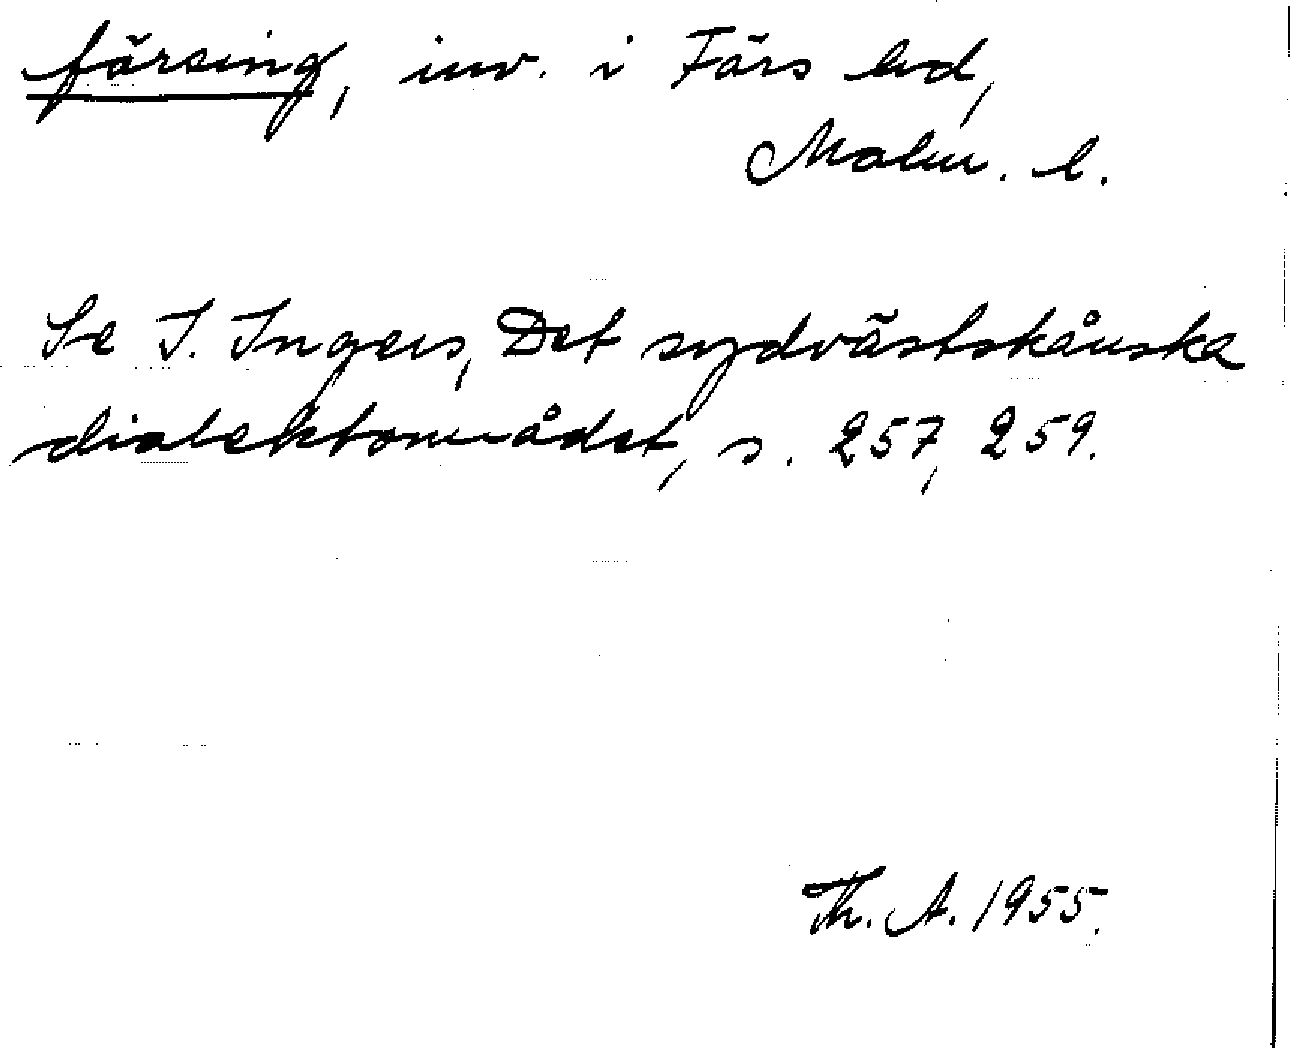 färsing, inv. i Färs hd,
Malm. l.
Se I. Ingers, Det sydvästskånska
dialektområdet, s. 257, 259.
Th. A. 1955.